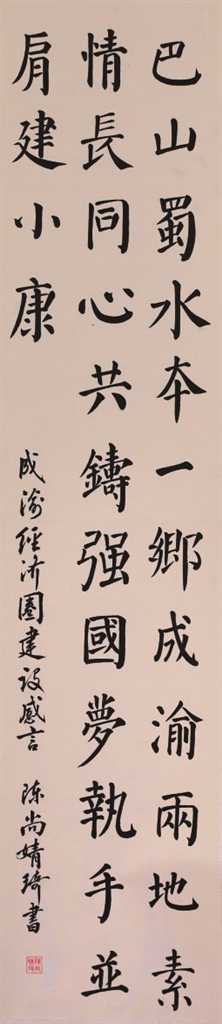 巴山蜀水本一鄉成渝兩地素
情長同心共鑄强國夢執手並
肩建小康
成渝經济圈建设感言 陈尚婧琦書